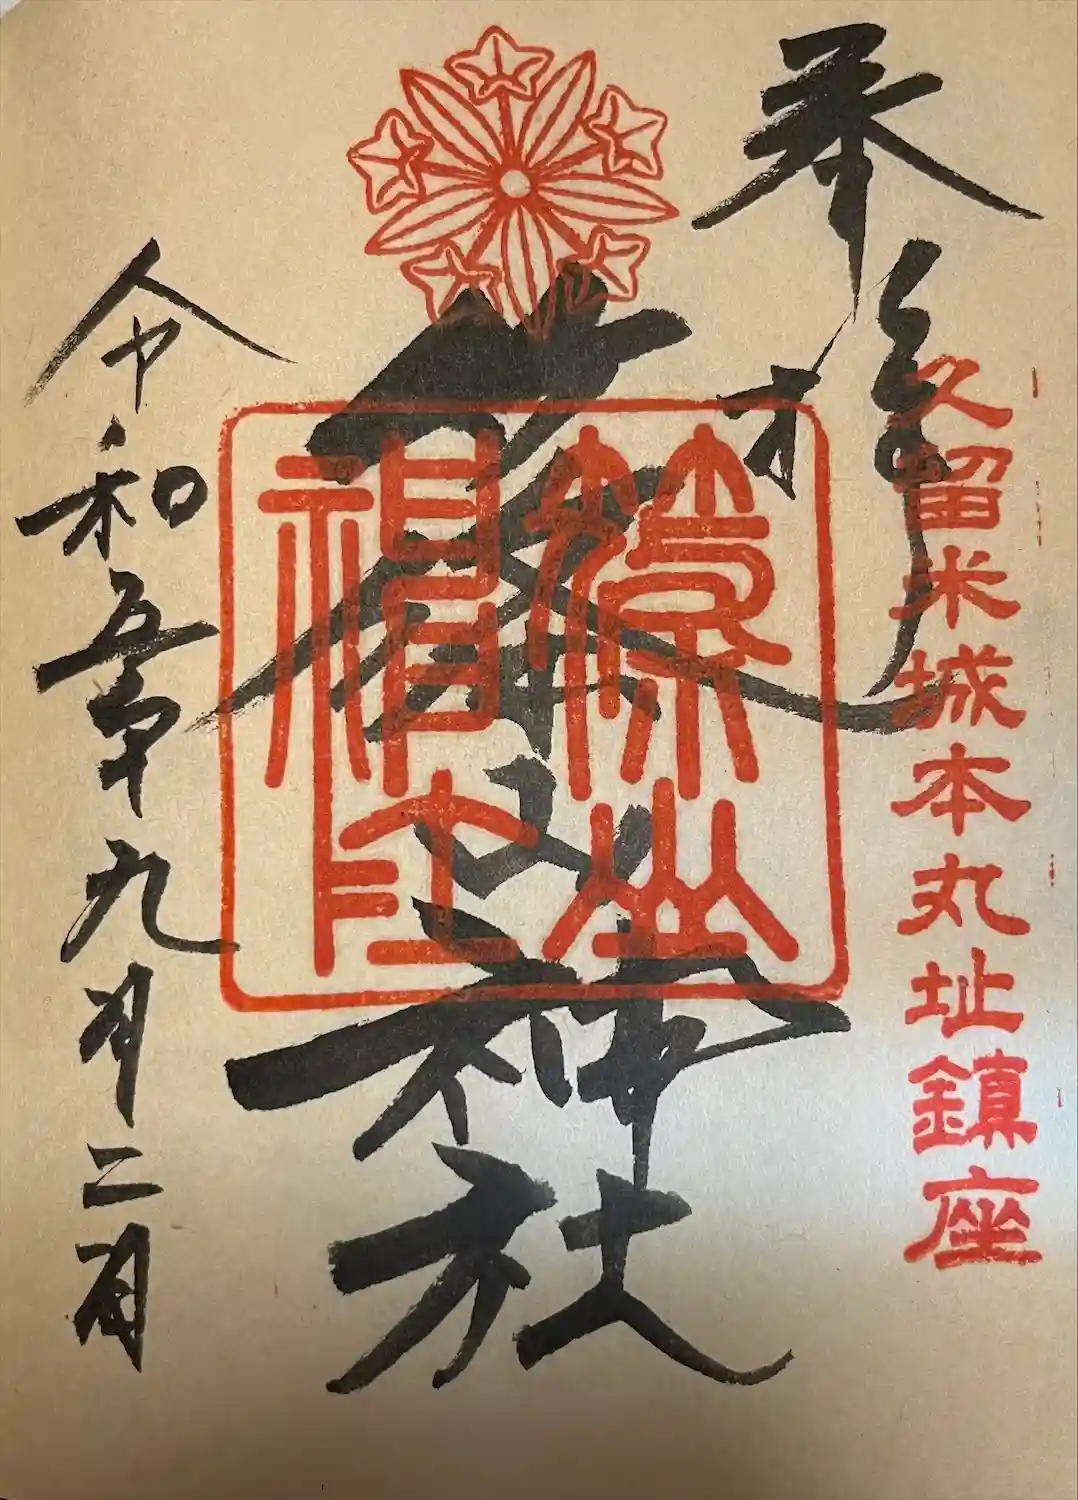 奉拝
久留米城本丸址鎮座
篠山神社
篠山神社印
令和五年九月二日